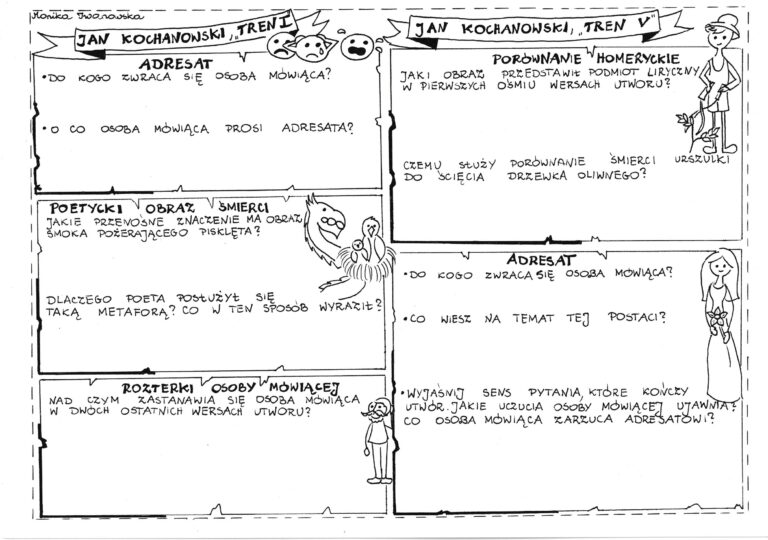 Monika Iwanowska
JAN KOCHANOWSKI, „TREN I"
ADRESAT
• DO KOGO ZWRACA SIĘ OSOBA MÓWIĄCA?
• O CO OSOBA MÓWIĄCA PROSI ADRESATA?
POETYCKI OBRAZ ŚMIERCI
JAKIE PRZENOŚNE ZNACZENIE MA OBRAZ
SMOKA POŻERAJĄCEGO PISKLĘTA?
DLACZEGO POETA POSŁUŻYŁ SIĘ
TAKĄ METAFORĄ? CO W TEN SPOSÓB WYRAZIŁ?
ROZTERKI OSOBY MÓWIĄCEJ
NAD CZYM ZASTANAWIA SIĘ OSOBA MÓWIĄCA
W DWÓCH OSTATNICH WERSACH UTWORU?
JAN KOCHANOWSKI, „TREN V"
PORÓWNANIE HOMERYCKIE
JAKI OBRAZ PRZEDSTAWIŁ PODMIOT LIRYCZNY
W PIERWSZYCH OŚMIU WERSACH UTWORU?
CZEMU SŁUŻY PORÓWNANIE ŚMIERCI URSZULKI
DO ŚCIĘCIA DRZEWKA OLIWNEGO?
ADRESAT
• DO KOGO ZWRACA SIĘ OSOBA MÓWIĄCA?
• CO WIESZ NA TEMAT TEJ POSTACI?
• WYJAŚNIJ SENS PYTANIA, KTÓRE KOŃCZY
UTWÓR. JAKIE UCZUCIA OSOBY MÓWIĄCEJ UJAWNIA?
CO OSOBA MÓWIĄCA ZARZUCA ADRESATOWI?